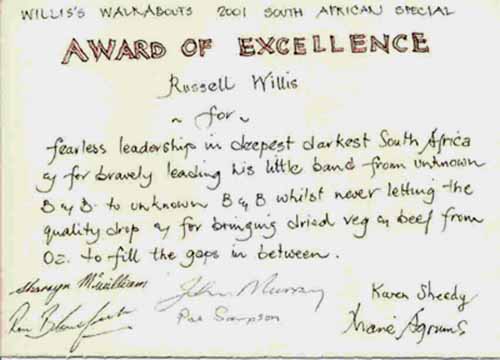 WILLIS'S WALKABOUTS 2001 SOUTH AFRICAN SPECIAL
AWARD OF EXCELLENCE
Russell Willis
~ for ~
fearless leadership in deepest darkest South Africa
& for bravely leading his little band from unknown
B & B to unknown B & B whilst never letting the
quality drop & for bringing dried veg & beef from
Oz. to fill the gaps in between.
John Murray
Karen Sheedy
Pat Sampson